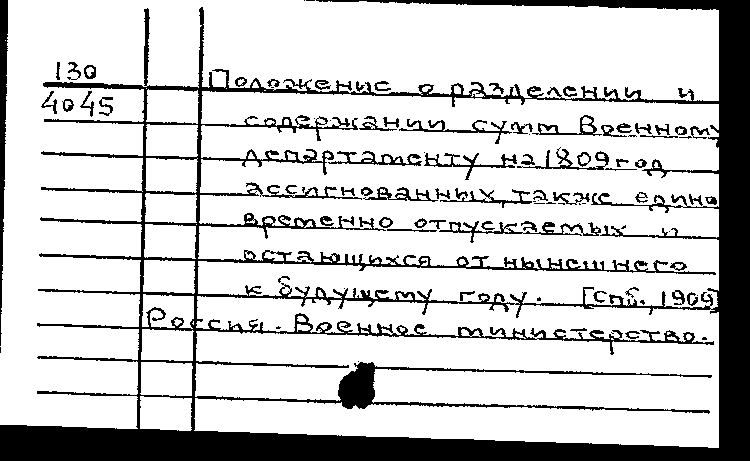 130
4045
Положение о разделении и
содержании сумм Военному
департаменту на 1809 год
ассигнованных, также едино
временно отпускаемых и
остающихся от нынешнего
к будущему году. [Спб., 1909]
Россия. Военное министерство.